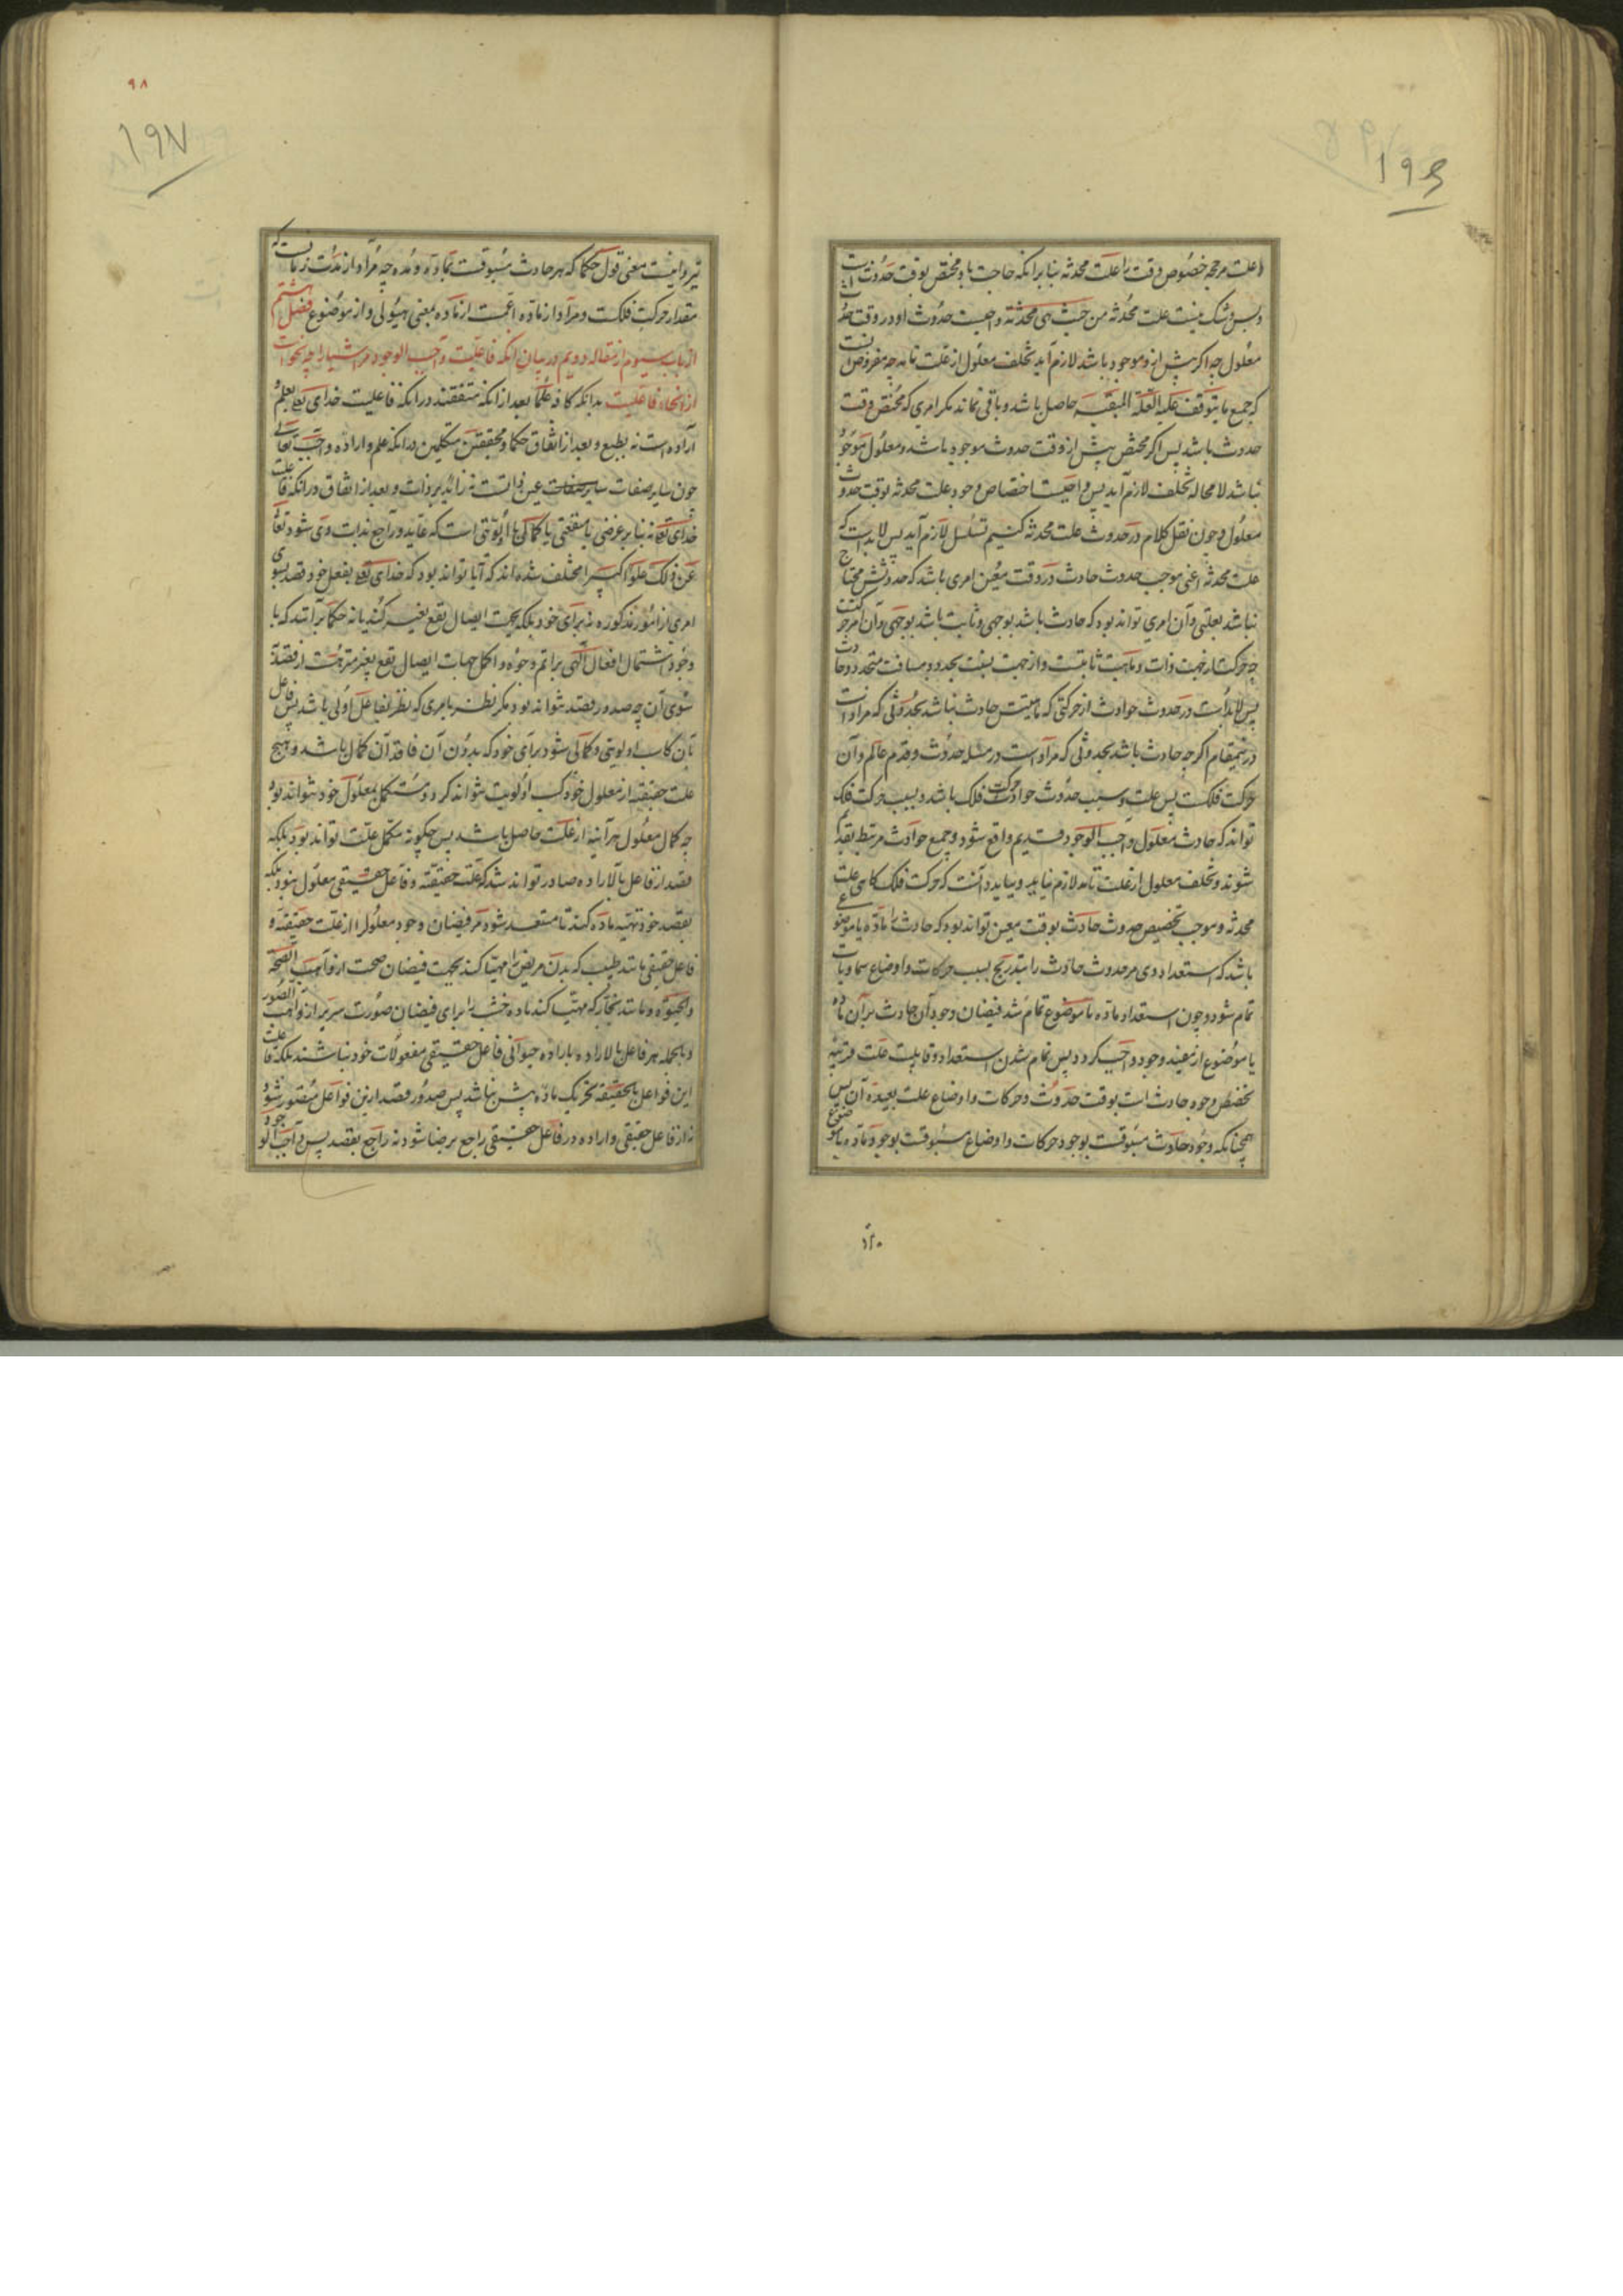 ۱۹۶
علت مرجحه خصوص وقت را علت محدثه بنا بر انکه حاجت باو مختص بوقت حدوث است
و بس و شک نیست علت محدثه من حیث هی محدثة واجبست حدوث او در وقت حدوث
معلول چه اکر پیش ازو موجود باشد لازم آید تخلف معلول از علت تامه چه مفروض آنست
که جمیع ما یتوقف علیه العلة المبقیه حاصل باشد و باقی نماند مکر امری که مختص وقت
حدوث باشد پس اکر مختص پیش از وقت حدوث موجود باشد و معلول موجود
نباشد لا محاله تخلف لازم آید پس واجبست اختصاص وجود علت محدثه بوقت حدوث
معلول و چون نقل کلام در حدوث علت محدثه کنیم تسلسل لازم آید پس لابد است که
علت محدثه اعنی موجب حدوث حادث در وقت معین امری باشد که حدوثش محتاج
نباشد بعلتی و آن امری تواند بود که حادث باشد بوجهی و ثابت باشد بوجهی و آن امر حرکتست
چه حرکت از جهت ذات و ماهیت ثابتست و از جهت نسبت بحدود مسافت متجدد و حادث
پس لابدست در حدوث حوادث از حرکتی که ماهیتش حادث نباشد بحدوثی که مراد است
درینمقام اکرچه حادث باشد بحدوثی که مراد است در مسئله حدوث و قدم عالم و آن
حرکت فلکست پس علت و سبب حدوث حوادث حرکت فلک باشد و بسبب حرکت فلک
تواند که حادث معلول واجب الوجود قدیم واقع شود و جمیع حوادث مرتبط بقدیم
شوند و تخلف معلول از علت تامه لازم نیاید و بباید دانست که حرکت فلک کاهی علت
محدثه و موجب تخصیص حدوث حادث بوقت معین تواند بود که حادث را ماده یا موضوع
باشد که استعداد وی مر حدوث حادث را بتدریج بسبب حرکات و اوضاع سماویات
تمام شود و چون استعداد ماده یا موضوع تمام شد فیضان وجود آن حادث بر آن ماده
یا موضوع از مفیض وجود واجب کردد پس تمام شدن استعداد و قابلیت علت قریبه
تخصیص وجود حادث است بوقت حدوث و حرکات و اوضاع علت بعیده آن پس
همچنانکه وجود حادث مسبوقست بوجود حرکات و اوضاع مسبوقست بوجود ماده یا موضوع
۹۸
۱۹۷
نیز و اینست معنی قول حکما که هر حادث مسبوقست بماده و مده چه مراد از مدت زمانست که
مقدار حرکت فلکست و مراد از ماده اعمست از ماده بمعنی هیولی و از موضوع فصل هشتم
از باب سیوم از مقاله دویم در بیان انکه فاعلیت واجب الوجود مر اشیا را چه نحو است
از انحاء فاعلیت بدانکه کافه علما بعد از انکه متفقند در انکه فاعلیت خدای تعالی بعلم و
اراده است نه بطبع و بعد از اتفاق حکما و محققین متکلمین در انکه علم و اراده واجب تعالی
چون سایر صفات عین ذاتست نه زاید بر ذات و بعد از اتفاق در انکه فاعلیت
خدای تعالی نه بنا بر غرضی یا منفعتی یا کمالی یا اولویتی است که عاید و راجع بذات وی شود تعالی
عن ذلک علوا کبیرا مختلف شده اند که آیا تواند بود که خدای تعالی بفعل خود قصد بسوی
امری از امور مذکوره نه برای خود بلکه بجهت ایصال نفع بغیر کند یا نه حکما بر آنند که با
وجود اشتمال افعال الهی بر اتم وجوه و اکمل جهات ایصال نفع بغیر منزهست از قصد
سوی آن چه صدور قصد نتواند بود مکر نظر بامری که نظر بفاعل اولی باشد پس فاعل
بآن کاسب اولویتی و کمالی شود برای خود که بدون آن فاقد آن کمال باشد و هیچ
علت حقیقیه از معلول خود کسب اولویت نتواند کرد و مستکمل بمعلول خود نتواند بود
چه کمال معلول هر آینه از علت حاصل باشد پس چکونه مکمل علت تواند بود بلکه
قصد از فاعل بالاراده صادر تواند شد که علت حقیقیه و فاعل حقیقی معلول نبود بلکه
بقصد خود تهیه ماده کند تا مستعد شود مر فیضان وجود معلول را از علت حقیقیه و
فاعل حقیقی مانند طبیب که بدن مریض را مهیا کند بجهت فیضان صحت از واهب الصحة
والحیوة و مانند نجار که مهیا کند ماده خشب را برای فیضان صورت سریر از واهب الصور
و بالجمله هر فاعل بالاراده باراده حیوانی فاعل حقیقی مفعولات خود نباشند بلکه فاعلیت
این فواعل بالحقیقه تحریک ماده بیش نباشد پس صدور قصد ازین فواعل متصور شود
نه از فاعل حقیقی و اراده در فاعل حقیقی راجع برضا شود نه راجع بقصد پس واجب الوجود